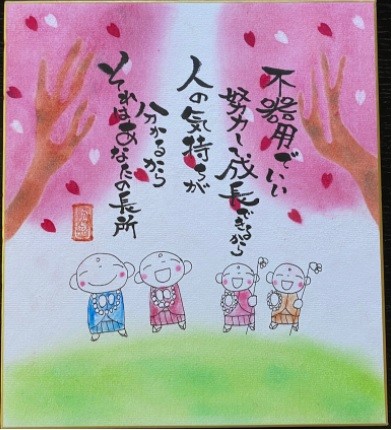 不器用でいい
努力して成長できるから
人の気持ちが
分かるから
それはあなたの長所